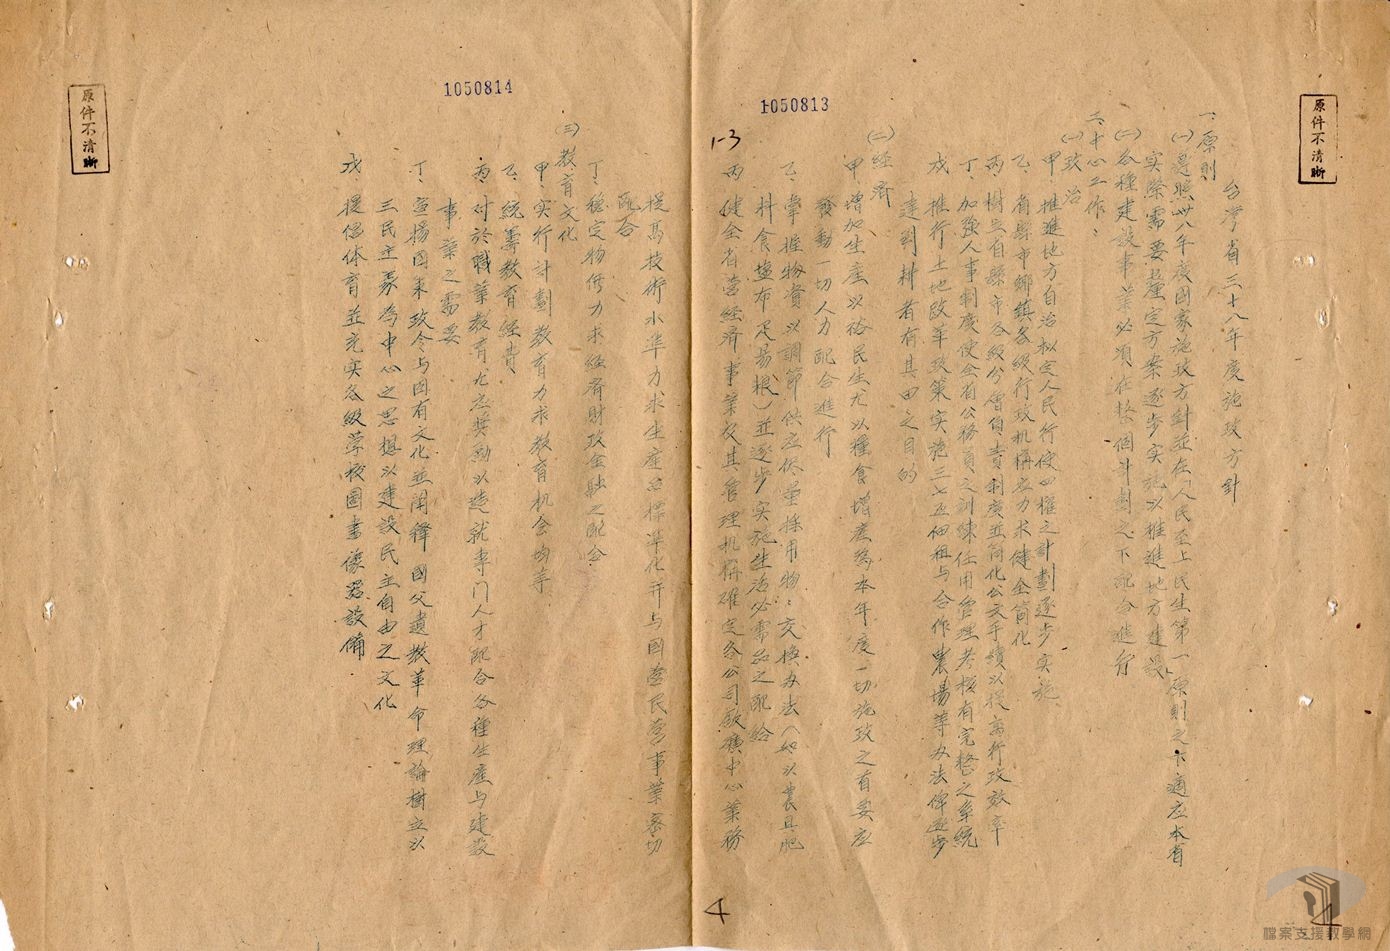 原件不清晰
1050813
台灣省三十八年度施政方針
一、原則
(一)遵照卅八年度國家施政方針並在「人民至上民生第一」原則之下適應本省
實際需要釐定方案逐步實施以推進地方建設
(二)各種建設事業必須在整個計劃之下配合進行
二、中心工作:
(一)政治
甲、推進地方自治擬定人民行使四權之計劃逐步實施
乙、省縣市鄉鎮各級行政机構应力求健全簡化
丙、樹立省縣市各級分層負責制度並簡化公文手續以提高行政效率
丁、加強人事制度使全省公務員之訓練任用管理考核有完整之系統
戊、推行土地改革政策实施三七五佃租与合作農場等办法俾逐步
達到耕者有其田之目的
(二)經濟
甲增加生產以裕民生尤以糧食增產為本年度一切施政之首要应
發動一切人力配合進行
乙、掌握物資以調節供应尽量採用物物交換办法(如以農具肥
料食塩布疋易粮)並逐步实施生活必需品之配給
1-3
丙、健全省营經濟事業及其管理机構確定各公司廠礦中心業務
4
1050814
提高技術水準力求生產品標準化并与國营民营事業密切
配合
丁、穩定物價力求經濟財政金融之配合
(三)教育文化
甲、实行計劃教育力求教育机会均等
乙、統籌教育經費
丙、对於職業教育尤应獎励以造就專门人才配合各種生產与建設
事業之需要
丁、宣揚国策政令与固有文化並闡釋 國父遺教革命理論樹立以
三民主義為中心之思想以建設民主自由之文化
戊、提倡体育並充实各級学校圖書儀器設備
原件不清晰
4
檔案支援教學網